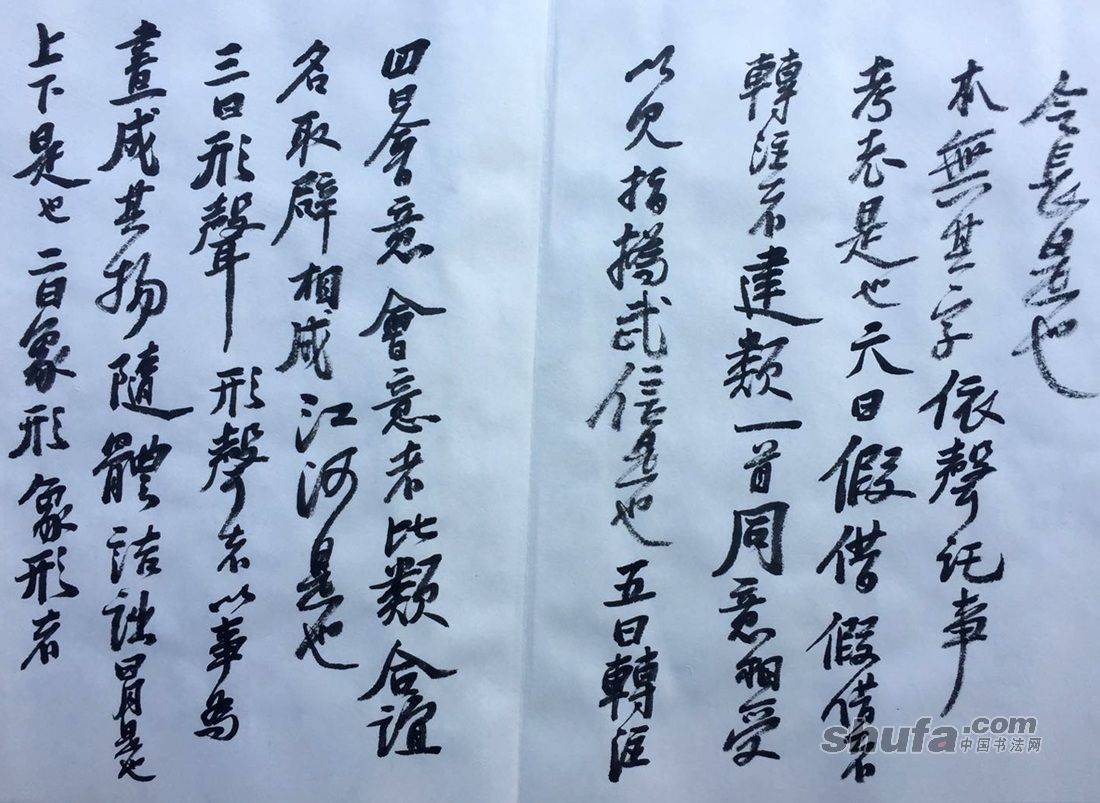 上下是也二曰象形象形者
畫成其物隨體詰詘日月是也
三曰形聲形聲者以事為
名取辟相成江河是也
四曰會意會意者比類合誼
以見指撝武信是也五曰轉注
轉注者建類一首同意相受
考老是也六曰假借假借者
本無其字依聲託事
令長是也
shufa.com
中国书法网